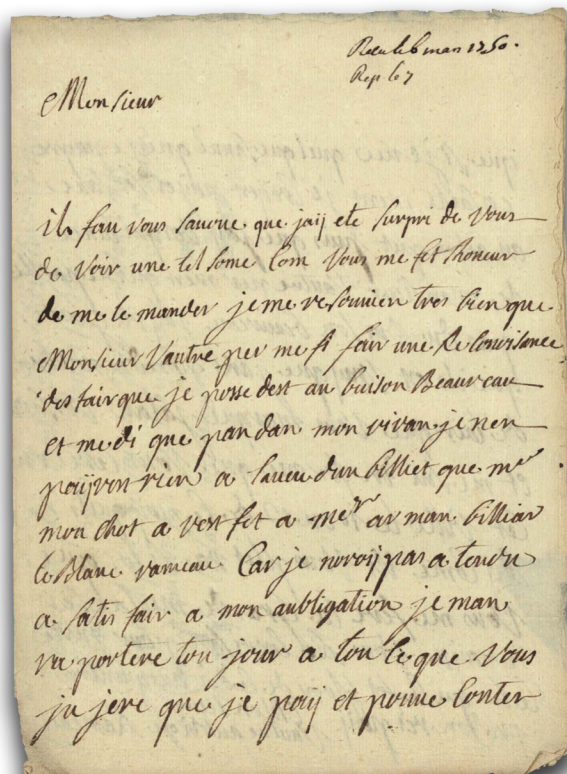 Reculé 6 mars 1750.
Rep le 7
Monsieur
il fau vous lavoue que jaij ete surpri de vous
de voir une tel some Com Vous me fet lhoneur
de me le mander je me resouvien tres bien que
Monsieur Vautre per me fi fair une Reconoisance
des fair que je posse dest au buison Beaureau
et me di que pandan mon vivan je nen
paijres rien a laveu dun billiet que mr
mon chot a vest fet a mer ar man billiar
le Blanc rameau Car je noroij pas a tendu
a satis fair a mon aubligation je man
ra portere tou jour a tou le que Vous
ju jere que je paij et pouve Conter